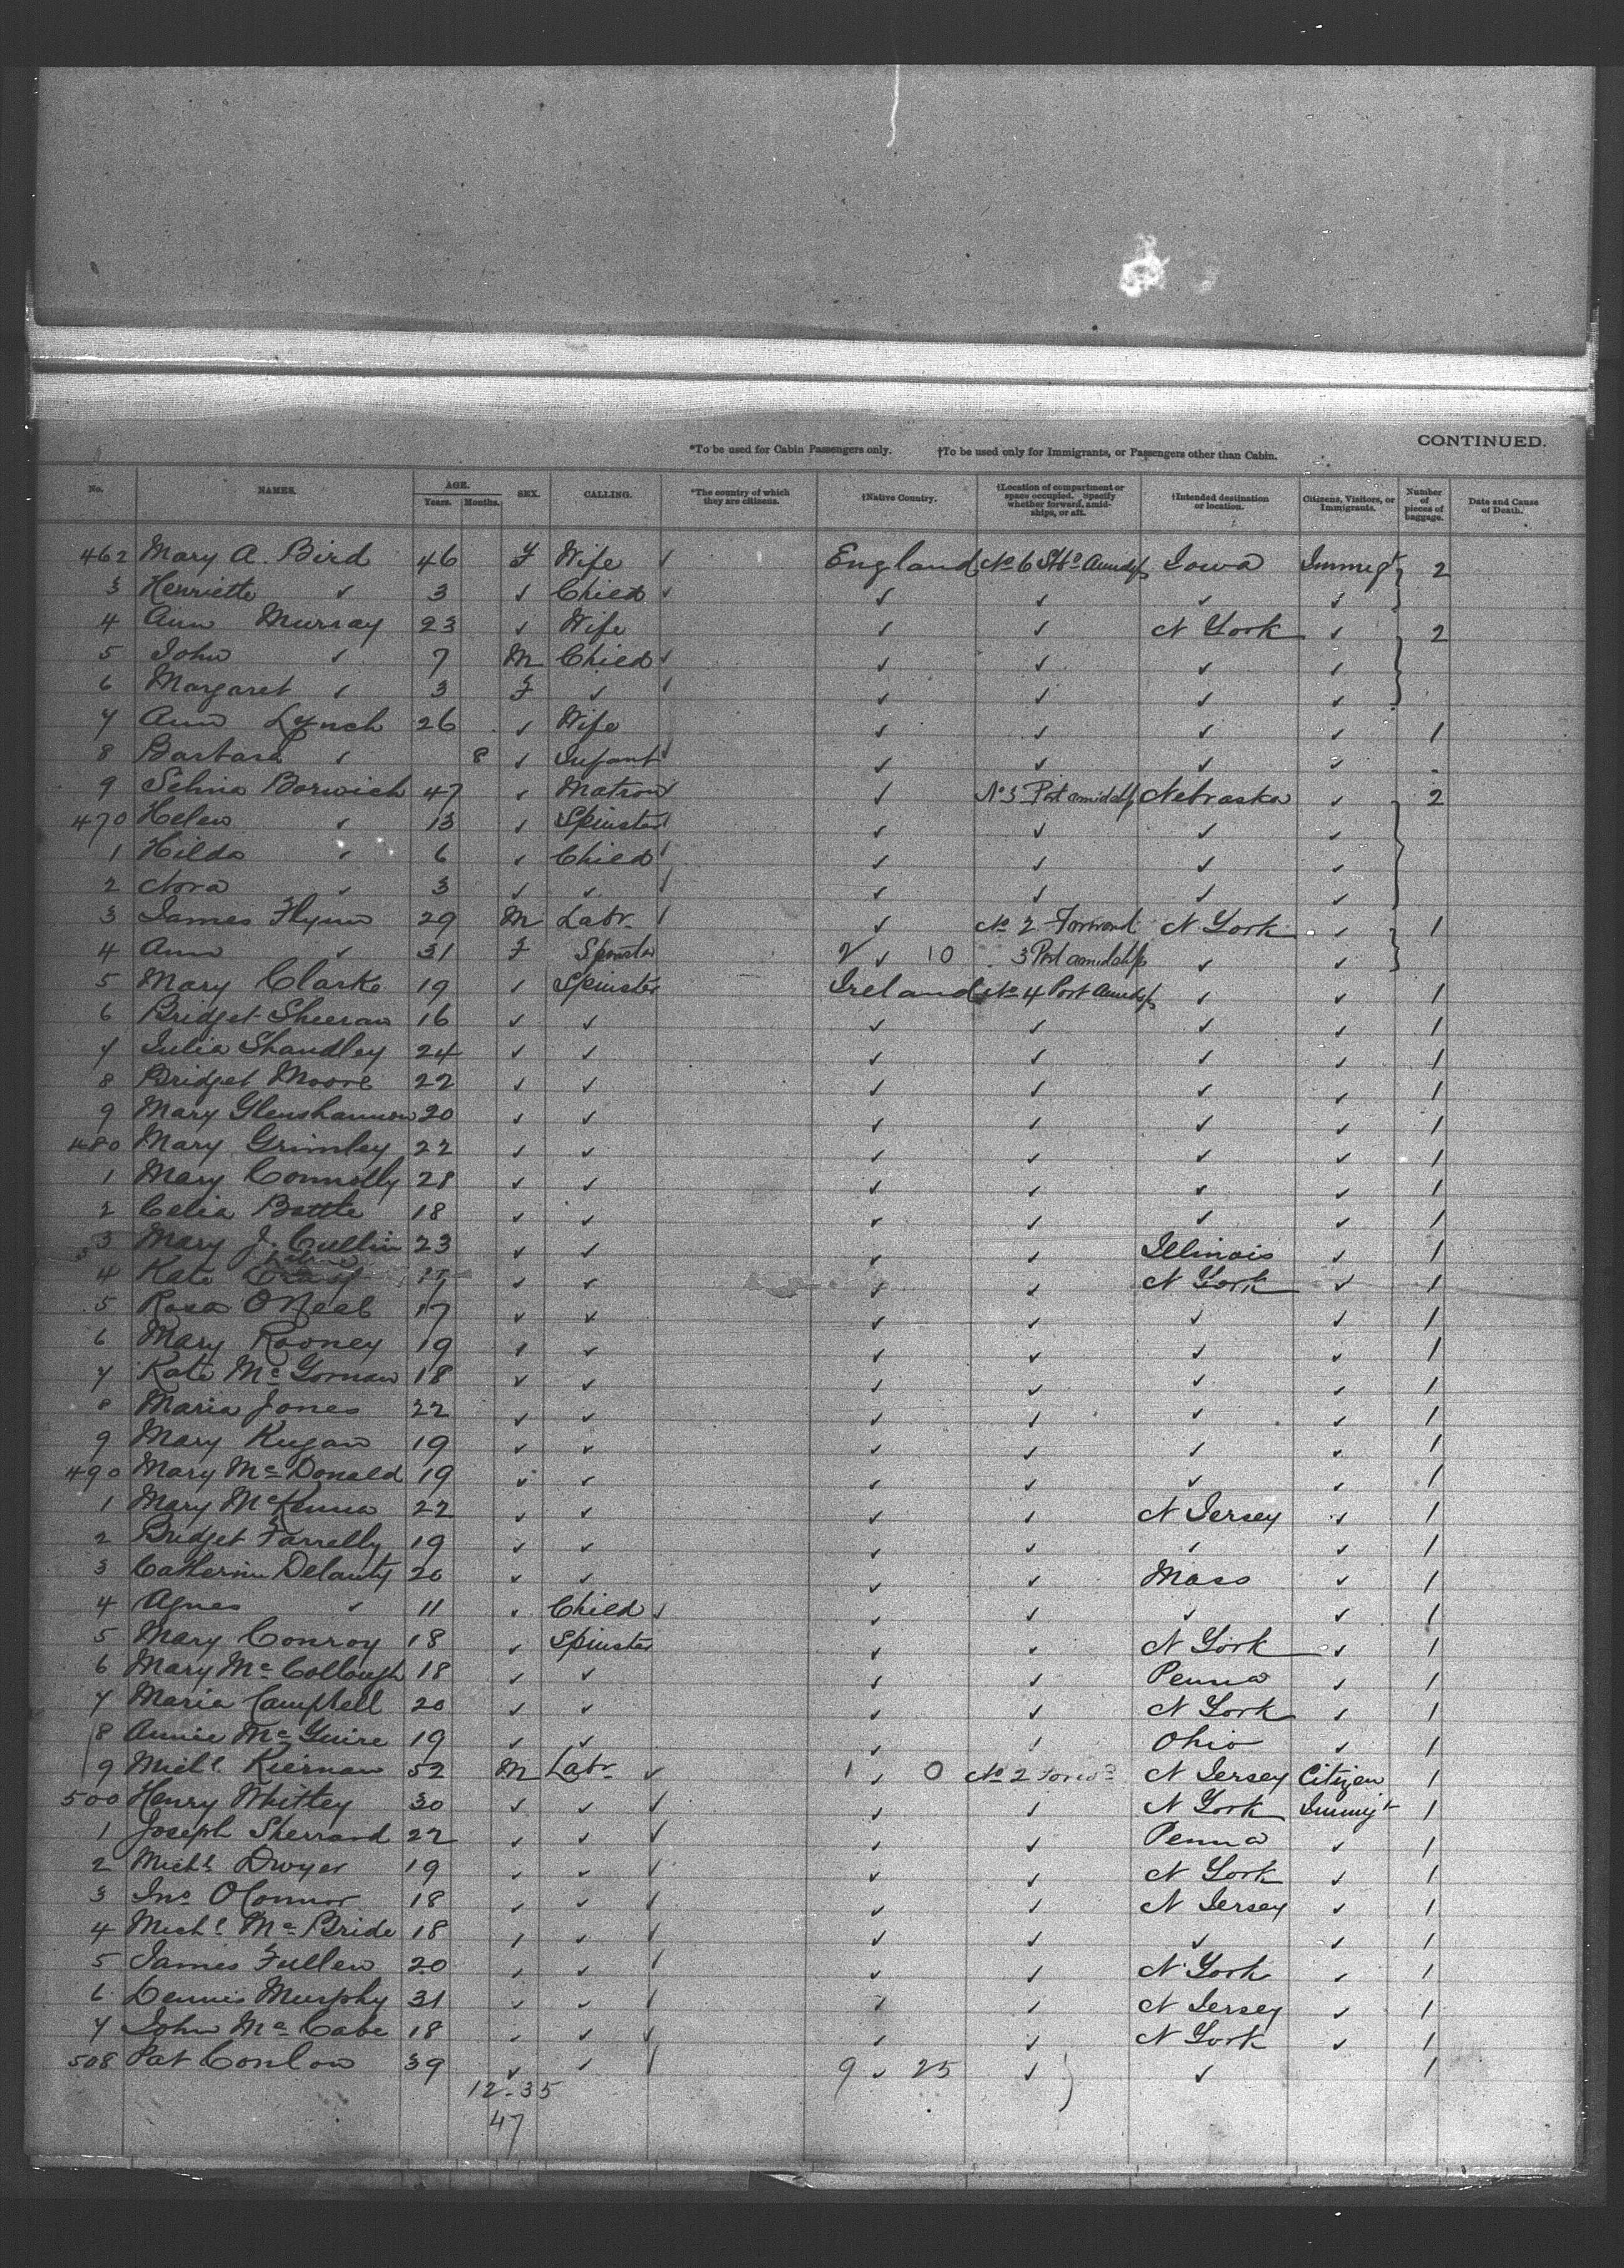 CONTINUED.
*To be used for Cabin Passengers only. †To be used only for Immigrants, or Passengers other than Cabin.
No. NAMES. AGE. Years. Months. SEX. CALLING. *The country of which they are citizens. †Native Country. †Location of compartment or space occupied. Specify whether forward, amidships, or aft. †Intended destination or location. Citizens, Visitors, or Immigrants. Number of pieces of baggage. Date and Cause of Death.
462 Mary A. Bird 46 F Wife ✓ England No 6 Amidsps Iowa Immigt 2
3 Henriette ✓ 3 ✓ Child ✓ ✓ ✓ ✓ ✓
4 Ann Murray 23 ✓ Wife ✓ ✓ N York ✓ 2
5 John ✓ 7 M Child ✓ ✓ ✓ ✓ ✓
6 Margaret ✓ 3 F ✓ ✓ ✓ ✓ ✓ ✓
7 Ann Lynch 26 ✓ Wife ✓ ✓ ✓ ✓ 1
8 Barbara ✓ 8 ✓ Infant ✓ ✓ ✓ ✓ ✓
9 Selina Borwick 47 ✓ Matron ✓ ✓ No 3 Port amidships Nebraska ✓ 2
470 Helen ✓ 13 ✓ Spinster ✓ ✓ ✓ ✓ ✓
1 Hilda ✓ 6 ✓ Child ✓ ✓ ✓ ✓ ✓
2 Nora ✓ 3 ✓ ✓ ✓ ✓ ✓ ✓ ✓
3 James Flynn 29 M Labr ✓ ✓ No 2 Forward N York ✓ 1
4 Ann ✓ 31 F Spinster 2 ✓ 10 3 Port amidships ✓ ✓
5 Mary Clarke 19 ✓ Spinster Ireland No 4 Port Amidsps ✓ ✓ 1
6 Bridget Sheeran 16 ✓ ✓ ✓ ✓ ✓ ✓ 1
7 Julia Shandley 24 ✓ ✓ ✓ ✓ ✓ ✓ 1
8 Bridget Moore 22 ✓ ✓ ✓ ✓ ✓ ✓ 1
9 Mary Glenshannon 20 ✓ ✓ ✓ ✓ ✓ ✓ 1
480 Mary Grimley 22 ✓ ✓ ✓ ✓ ✓ ✓ 1
1 Mary Connolly 28 ✓ ✓ ✓ ✓ ✓ ✓ 1
2 Celia Battle 18 ✓ ✓ ✓ ✓ ✓ ✓ 1
3 Mary J. Cullin 23 ✓ ✓ ✓ ✓ Illinois ✓ 1
4 Kate ✓ ✓ ✓ ✓ N York ✓ 1
5 Rosa ONeal 17 ✓ ✓ ✓ ✓ ✓ ✓ 1
6 Mary Rooney 19 ✓ ✓ ✓ ✓ ✓ ✓ 1
7 Kate McGornan 18 ✓ ✓ ✓ ✓ ✓ ✓ 1
8 Maria Jones 22 ✓ ✓ ✓ ✓ ✓ ✓ 1
9 Mary Kugan 19 ✓ ✓ ✓ ✓ ✓ ✓ 1
490 Mary McDonald 19 ✓ ✓ ✓ ✓ ✓ ✓ 1
1 Mary McKenna 22 ✓ ✓ ✓ ✓ N Jersey ✓ 1
2 Bridget Farrelly 19 ✓ ✓ ✓ ✓ ✓ ✓ 1
3 Catherine Delanty 20 ✓ ✓ ✓ ✓ Mass ✓ 1
4 Agnes ✓ 11 ✓ Child ✓ ✓ ✓ ✓ ✓ 1
5 Mary Conroy 18 ✓ Spinster ✓ ✓ N York ✓ 1
6 Mary McCollough 18 ✓ ✓ ✓ ✓ Penna ✓ 1
7 Maria Campbell 20 ✓ ✓ ✓ ✓ N York ✓ 1
8 Annie McGuire 19 ✓ ✓ ✓ ✓ Ohio ✓ 1
9 Michl Kiernan 52 M Labr ✓ 1 ✓ 0 No 2 Forwd N Jersey Citizen 1
500 Henry Whitley 30 ✓ ✓ ✓ ✓ ✓ N York Immigt 1
1 Joseph Sherrard 22 ✓ ✓ ✓ ✓ ✓ Penna ✓ 1
2 Michl Dwyer 19 ✓ ✓ ✓ ✓ ✓ N York ✓ 1
3 Jno OConnor 18 ✓ ✓ ✓ ✓ ✓ N Jersey ✓ 1
4 Michl McBride 18 ✓ ✓ ✓ ✓ ✓ ✓ ✓ 1
5 James Fullen 20 ✓ ✓ ✓ ✓ ✓ N York ✓ 1
6 Dennis Murphy 31 ✓ ✓ ✓ ✓ ✓ N Jersey ✓ 1
7 John McCabe 18 ✓ ✓ ✓ ✓ ✓ N York ✓ 1
508 Pat Conlon 39 ✓ ✓ ✓ 9 ✓ 25 ✓ ✓ 1
12-35
47